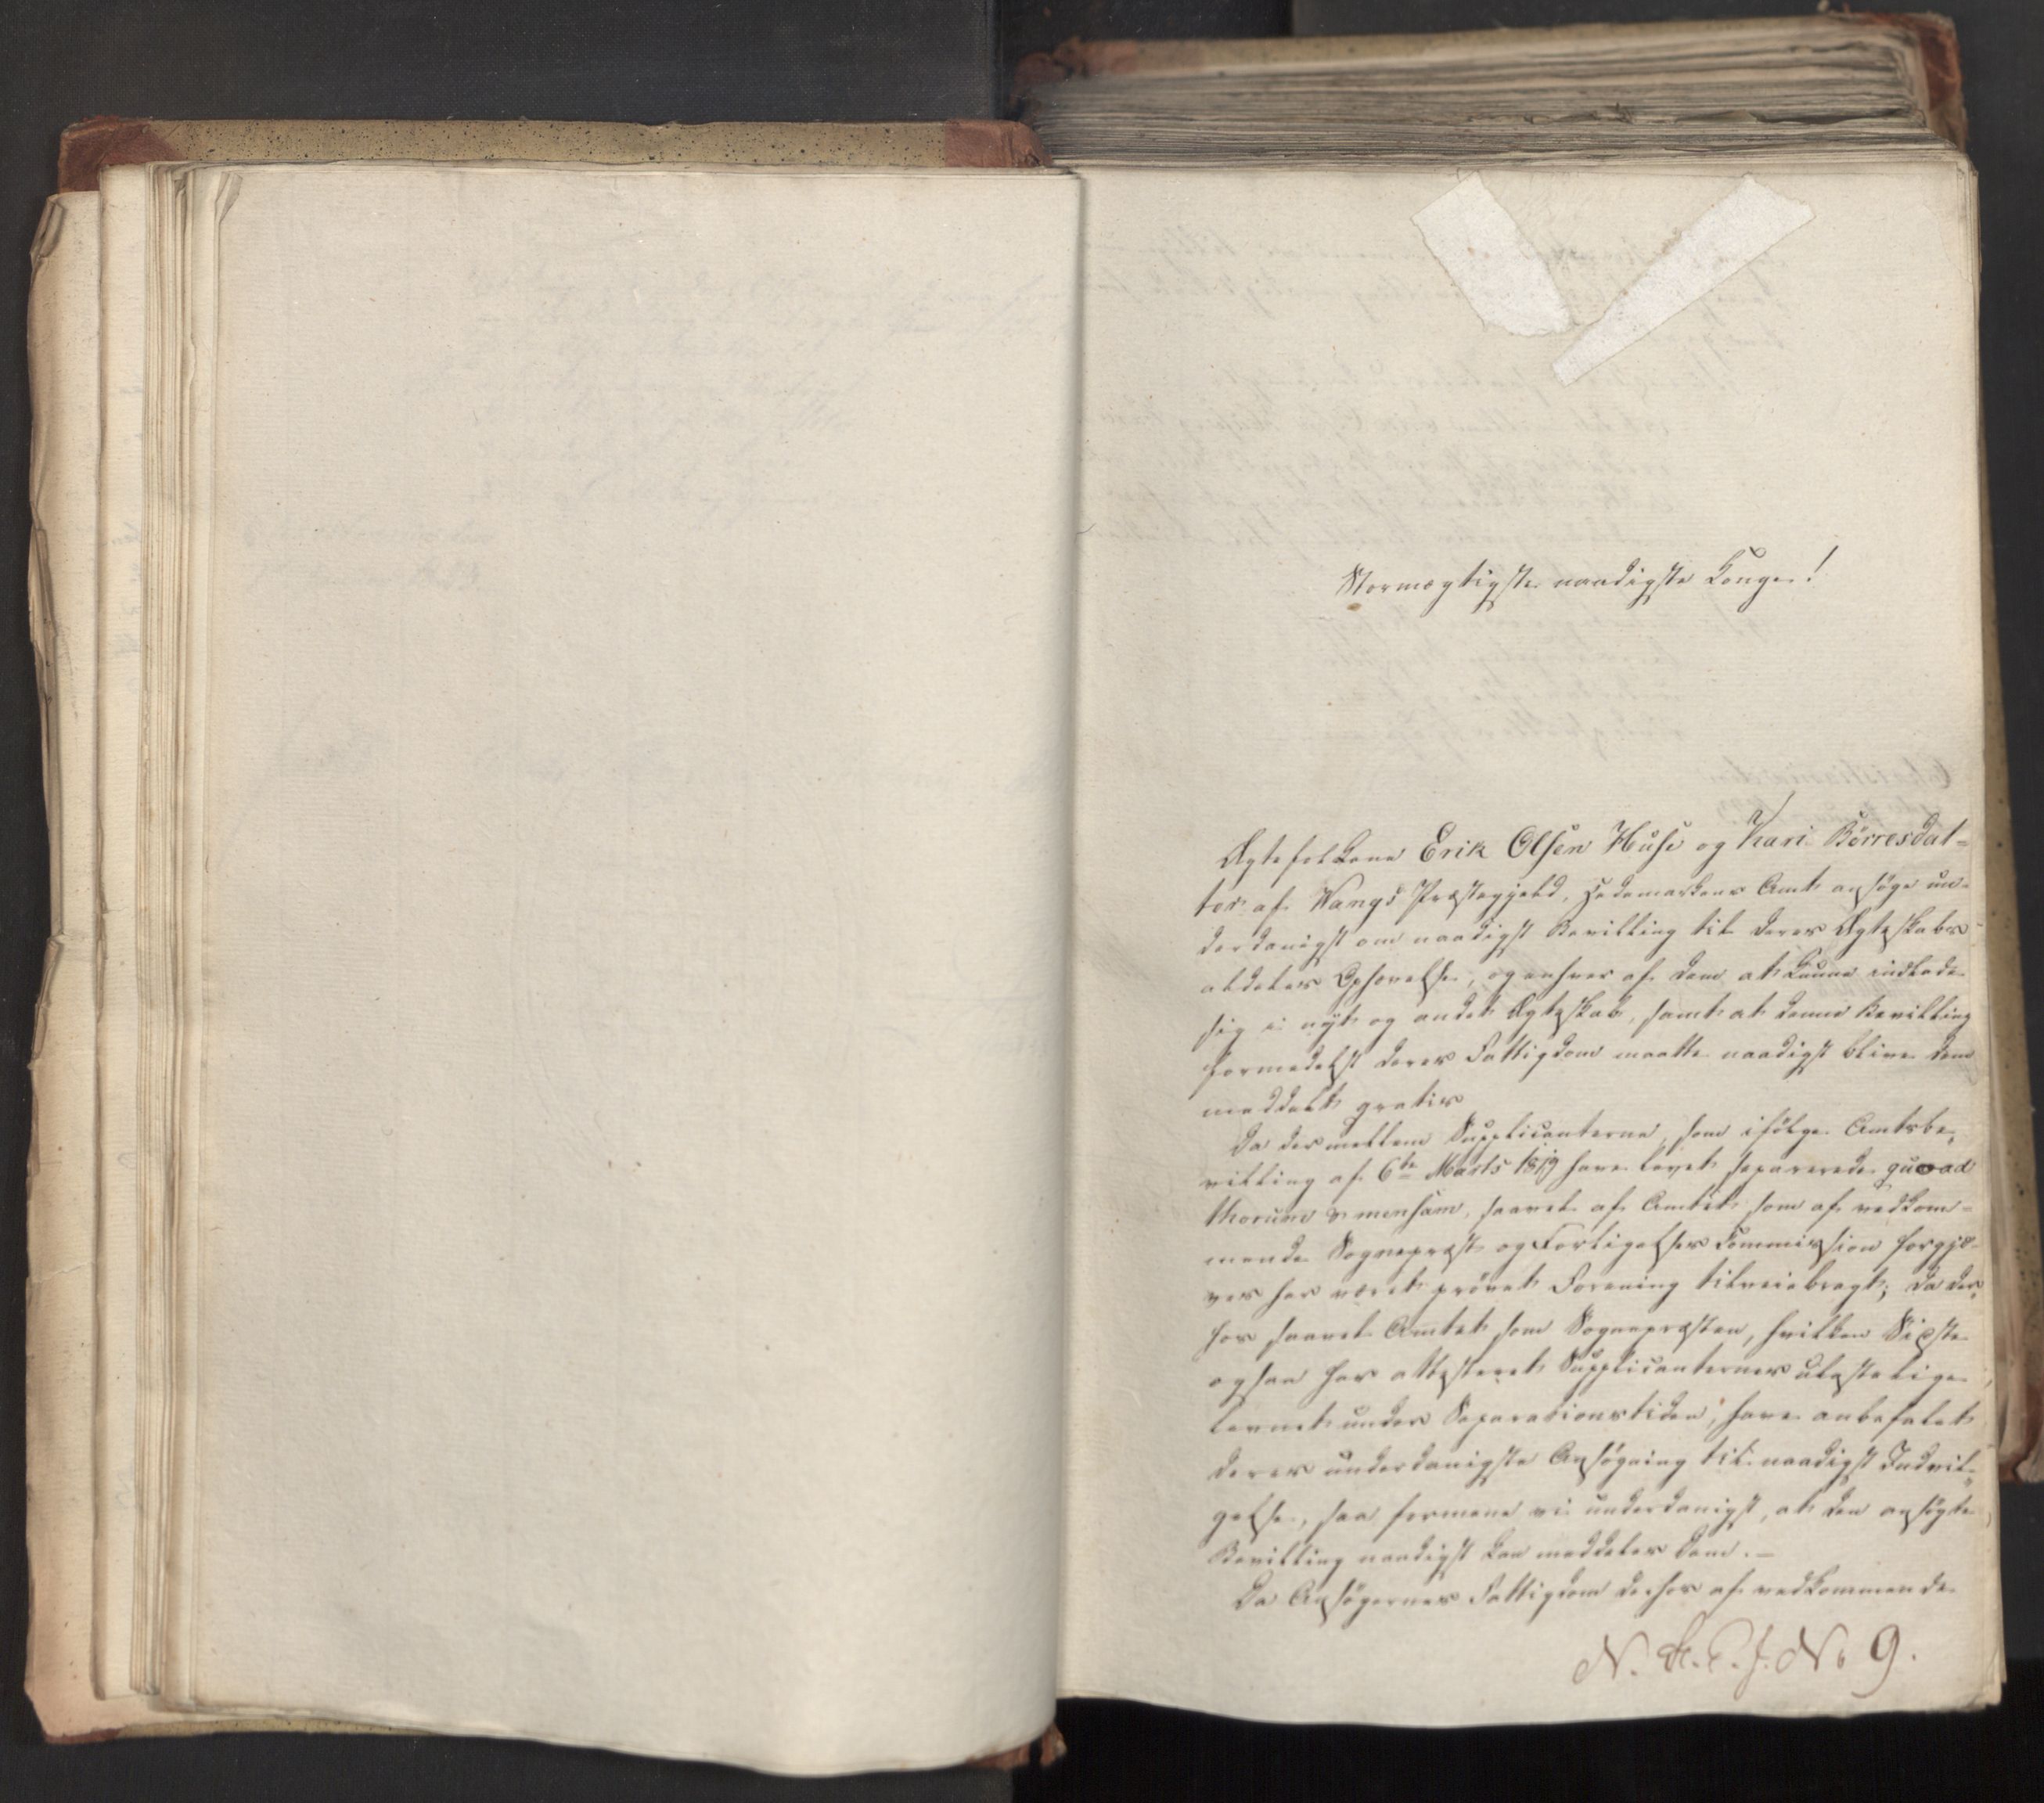 Stormægtigste naadigste Konge!
Ægtefolkene Erik Olsen Huse og Kari Børresdat=
ter af Vangs Præstegjeld, Hedemarkens Amt ansøge un=
derdanigst om naadigst Bevilling til deres Ægteskabs
aldeles Ophævelse, og enhver af dem at kunne indlade
sig i nyt og andet Ægteskab, samt at denne Bevilling
formedelst deres Fattigdom maatte naadigst blive dem
meddelt gratis
Da der mellem Supplicanterne, som ifølge Amtsbe=
villing af 6te Marts 1819 have levet separerede quoad
thorum & mensam, saavel af Amtet som af vedkom=
mende Sognepræst og Forligelses Commission forgjæ=
ves har været prøvet Forening tilveiebragt; da der=
hos saavel Amtet som Sognepræsten, hvilken Sidste
ogsaa har attesteret Supplicanternes ulastelige
Levnet under Separationstiden, have anbefalet
deres underdanigste Ansøgning til naadigst Indvil=
gelse, saa formene vi underdanigst, at den ansøgte
Bevilling naadigst kan meddeles dem. —
Da Ansøgernes Fattigdom derhos af vedkommende
N. St. C. J. No 9.